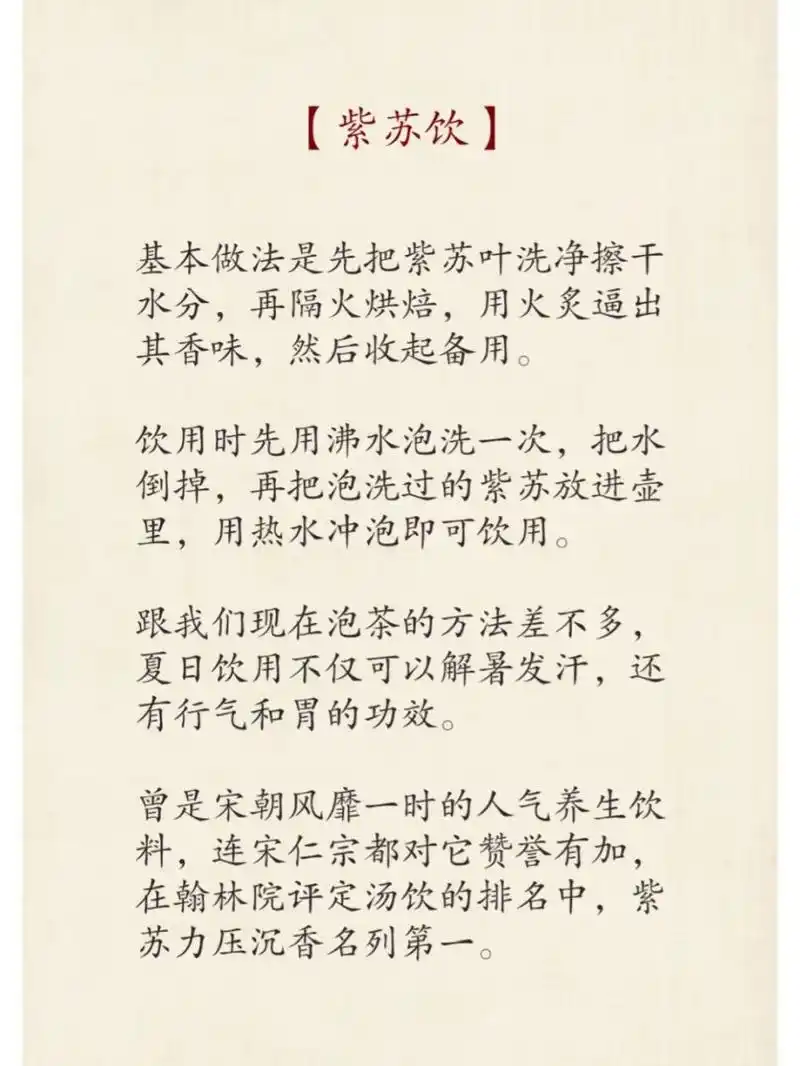 【紫苏饮】
基本做法是先把紫苏叶洗净擦干
水分，再隔火烘焙，用火炙逼出
其香味，然后收起备用。
饮用时先用沸水泡洗一次，把水
倒掉，再把泡洗过的紫苏放进壶
里，用热水冲泡即可饮用。
跟我们现在泡茶的方法差不多，
夏日饮用不仅可以解暑发汗，还
有行气和胃的功效。
曾是宋朝风靡一时的人气养生饮
料，连宋仁宗都对它赞誉有加，
在翰林院评定汤饮的排名中，紫
苏力压沉香名列第一。